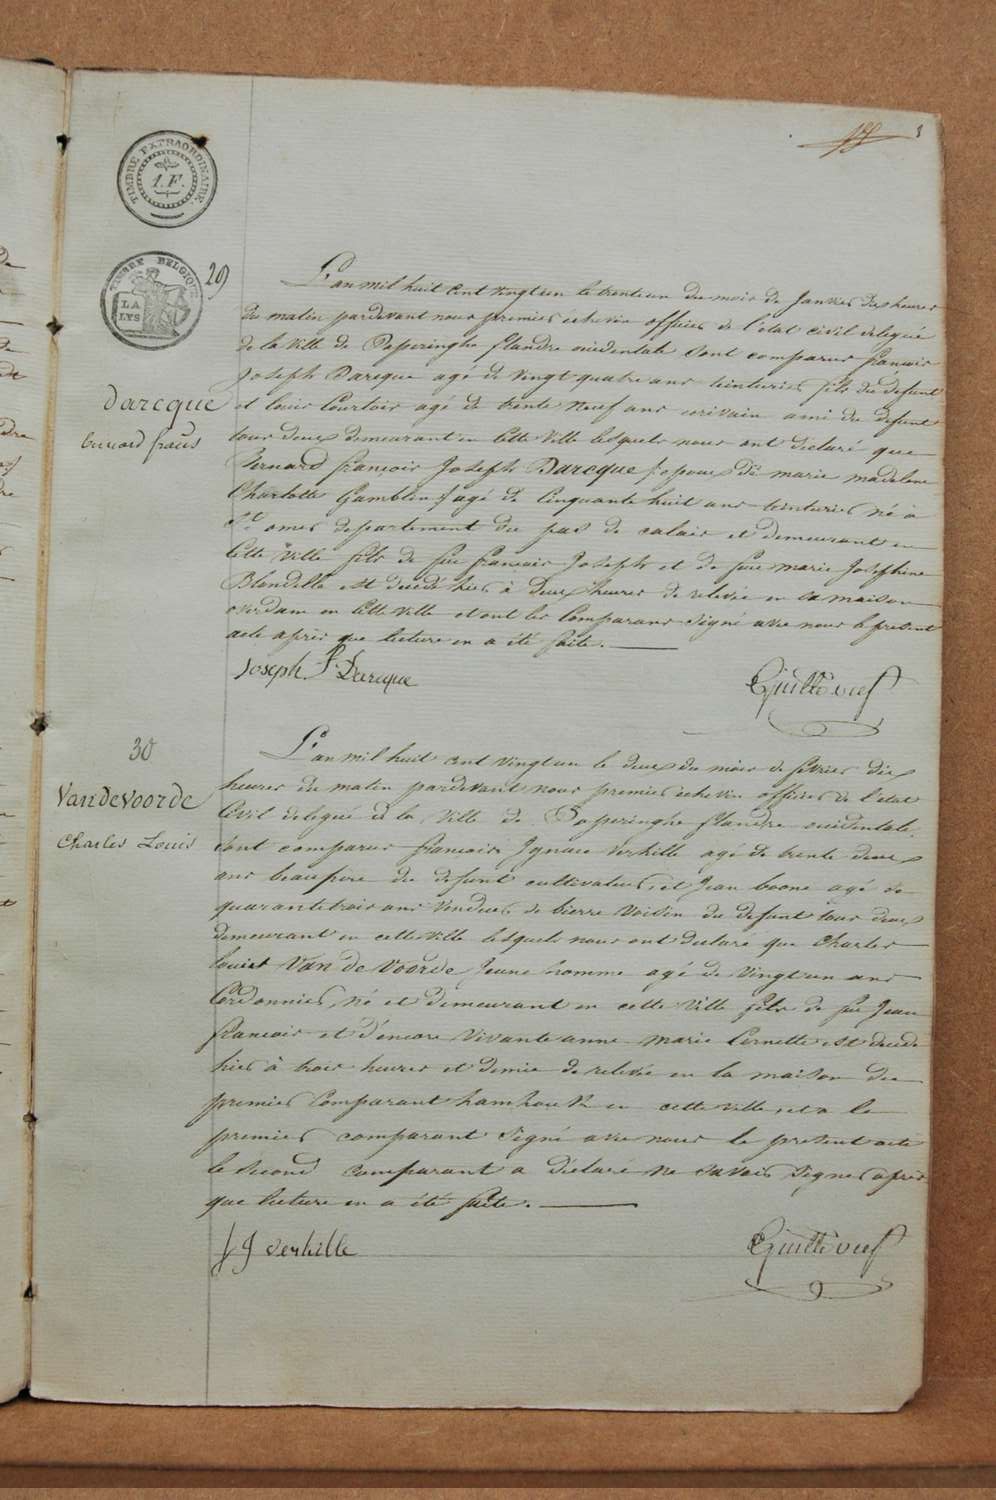 TIMBRE EXTRAORDINAIRE
1.F.
TIMBRE BELGIQUE
LA LYS
29
Darcque
bernard frans
L'an mil huit cent vingt un le trente un du mois de Janvier dix heures
du matin pardevant nous premier échevin officier de l'état civil delegué
de la ville de Poperinghe flandre occidentale sont comparus françois
Joseph Darcque agé de vingt quatre ans teinturier fils du défunt
et Louis Courtois agé de trente neuf ans ecrivain ami du défunt
tous deux demeurant en cette ville lesquels nous ont déclaré que
Bernard françois Joseph Darcque epoux de marie madelene
Charlotte Gamblin agé de Cinquante huit ans teinturier né à
St omer departement du pas de calais et demeurant en
cette ville fils de feu françois Joseph et de feue marie Josephine
Blondelle est decédé hier à deux heures de relevée en sa maison
overdam en cette ville et ont les Comparans signé avec nous le présent
acte après que lecture en a été faite.
Joseph F. Darcque
30
Vandevoorde
Charles Louis
L'an mil huit cent vingt un le deux du mois de fevrier dix
heures du matin pardevant nous premier échevin officier de l'état
Civil delegué de la ville de Poperinghe flandre occidentale
sont comparus françois Ignace Verhille agé de trente deux
ans beaupère du defunt cultivateur, et Jean boone agé de
quarantetrois ans vendeur de bierre voisin du defunt tous deux
demeurant en cette ville lesquels nous ont declaré que Charles
Louis Van de Voorde Jeune homme agé de vingt un ans
Cordonnier, né et demeurant en cette ville fils de feu Jean
françois et d'encore vivante anne marie Cernette est decedé
hier à trois heures et demie de relevée en la maison du
premier Comparant hamhoek en cette ville, et a le
premier comparant signé avec nous le present acte
le second comparant a déclaré ne savoir signer après
que lecture en a été faite.
f J verhille